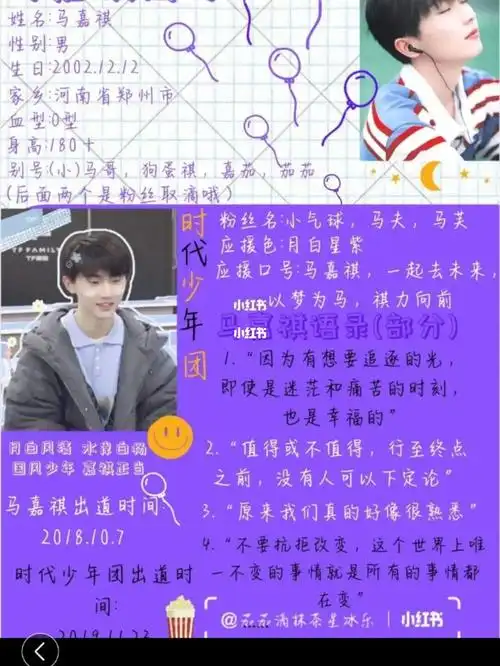 姓名:马嘉祺
性别:男
生日:2002.12.12
家乡:河南省郑州市
血型:O型
身高:180+
别号(小)马哥，狗蛋祺，嘉茄，茄茄
(后面两个是粉丝取滴哦)
TF FAMILY
TF家族
时代少年团
粉丝名:小气球，马夫，马芙
应援色:月白星紫
应援口号:马嘉祺，一起去未来，
以梦为马，祺力向前
小红书
小红书
马嘉祺语录(部分)
1.“因为有想要追逐的光，
即使是迷茫和痛苦的时刻，
也是幸福的”
2.“值得或不值得，行至终点
之前，没有人可以下定论”
3.“原来我们真的好像很熟悉”
4.“不要抗拒改变，这个世界上唯
一不变的事情就是所有的事情都
在变”
月白风清 水岸白杨
国风少年 嘉祺正当
马嘉祺出道时间:
2018.10.7
时代少年团出道时
间:
2019.11.23
小红书